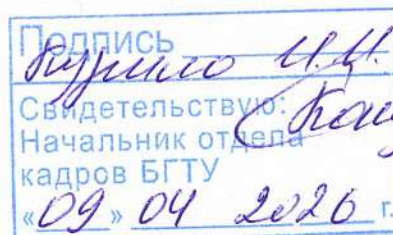 Подпись
Курило И.И.
Свидетельствую:
Начальник отдела
кадров БГТУ
«09» 04 2026 г.